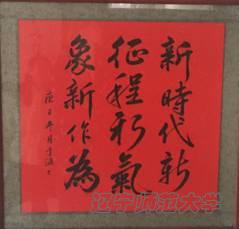 新時代新
征程新氣
象新作為
辽宁师范大学